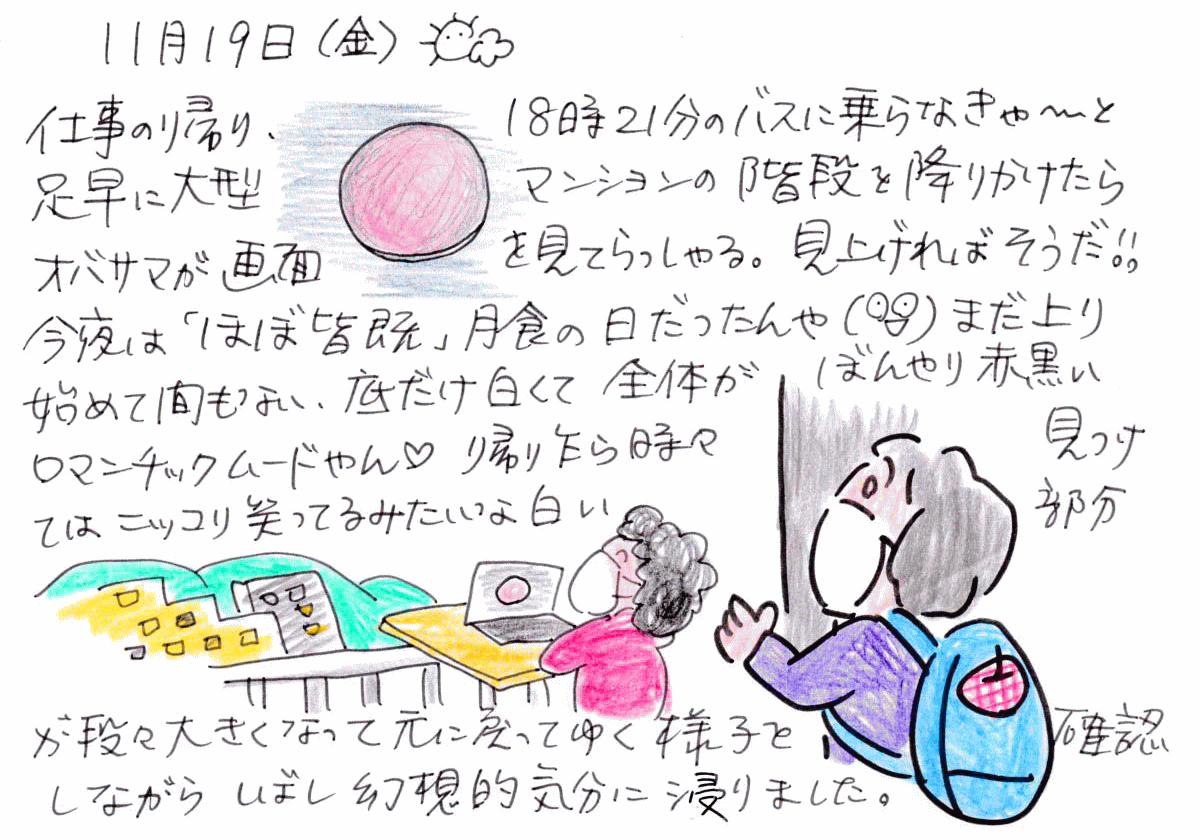 11月19日(金)
仕事の帰り、18時21分のバスに乗らなきゃ〜と
足早に大型マンションの階段を降りかけたら
オバサマが画面を見てらっしゃる。見上げればそうだ!!
今夜は「ほぼ皆既」月食の日だったんや まだ上り
始めて間もない、底だけ白くて全体がぼんやり赤黒い
ロマンチックムードやん♡ 帰り乍ら時々見つけ
てはニッコリ笑ってるみたいな白い部分
が段々大きくなって元に戻ってゆく様子を確認
しながらしばし幻想的気分に浸りました。